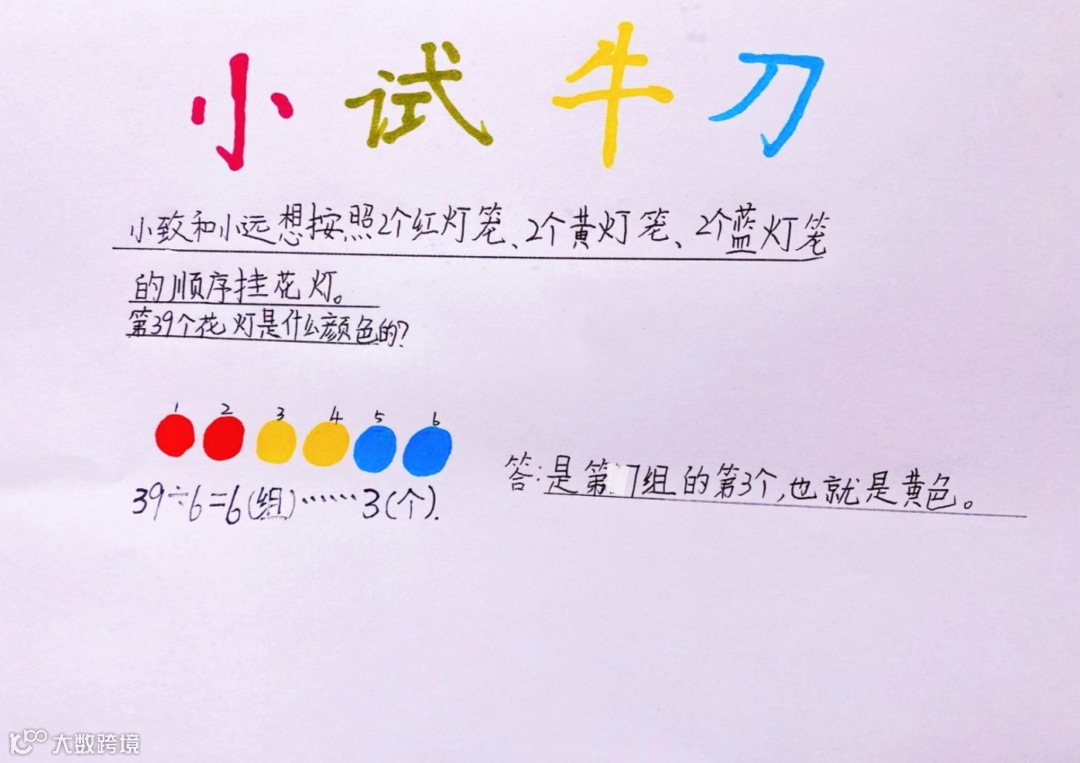 小试牛刀
小致和小远想按照2个红灯笼、2个黄灯笼、2个蓝灯笼
的顺序挂花灯。
第39个花灯是什么颜色的?
1 2 3 4 5 6
39÷6=6(组)……3(个).
答:是第7组的第3个,也就是黄色。
大数跨境